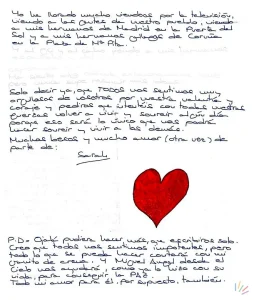 Yo he llorado mucho viendoos por la televisión,
viendo a las gentes de vuestro pueblo, viendo
a mis hermanos de Madrid en la Puerta del
Sol y a mis hermanos de Coruña
en la Plaza de Mª Pita.
Solo decir ya, que TODOS nos sentimos muy
orgullosos de vosotros por vuestra valentía y
coraje y pediros que intentéis con todas vuestras
fuerzas volver a vivir y sonreir algún día
porque eso será lo único que nos podrá
hacer sonreir y vivir a los demás.
Muchos besos y mucho amor (otra vez) de
parte de:
Sarah
P.D.- Ojalá pudiera hacer más, que escribiros solo.
Creo que todos nos sentimos impotentes, pero
todo lo que se pueda hacer contará con mi
granito de arena. Y Miguel Angel desde el
Cielo nos ayudará, como ya lo hizo con su
vida, para conseguir la PAZ.
Todo mi amor para él, por supuesto, también.